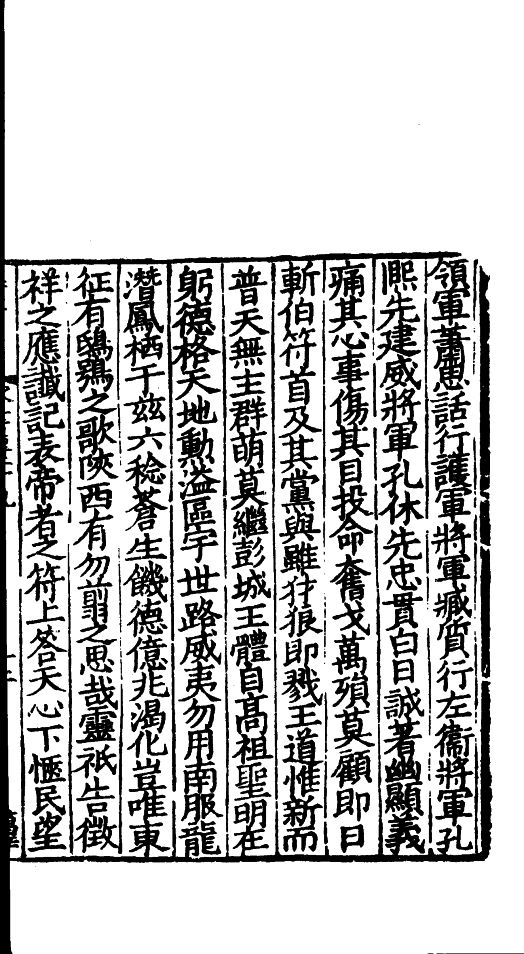 領軍蕭思話行護軍將軍臧質行左衞將軍孔
熙先建威將軍孔休先忠貫白日誠著幽顯義
痛其心事傷其目投命奮戈萬殞莫顧即日
斬伯符首及其黨與雖犲狼即戮王道惟新而
普天無主群萌莫繼彭城王體自髙祖聖明在
躬德格天地勲溢區宇世路威夷勿用南服龍
潛鳳栖于兹六稔蒼生饑德億兆渇化豈唯東
征有鴟鴞之歌陝西有勿翦之思哉靈祇告徴
祥之應讖記表帝者之符上答天心下愜民望